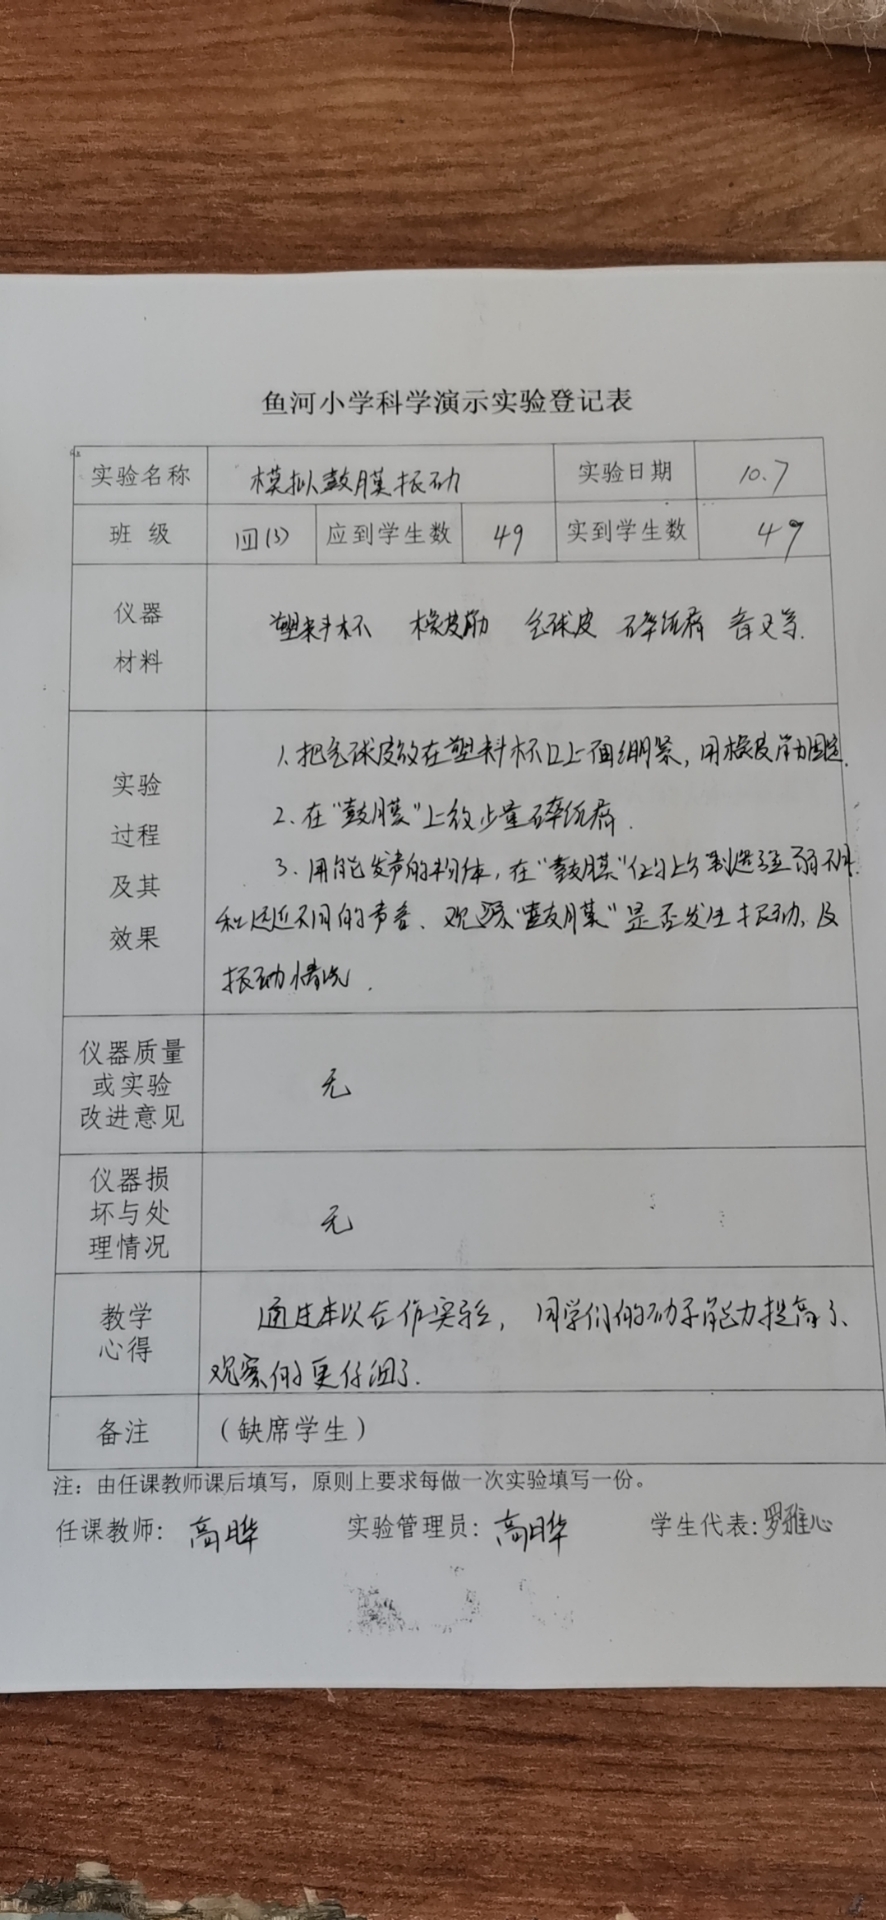 鱼河小学科学演示实验登记表
实验名称 模拟鼓膜振动 实验日期 10.7
班 级 四(3) 应到学生数 49 实到学生数 49
仪器
材料
塑料杯 橡皮筋 气球皮 碎纸屑 音叉等.
实验
过程
及其
效果
1.把气球皮放在塑料杯口上面绷紧,用橡皮筋固定.
2、在“鼓膜”上放少量碎纸屑.
3、用能发声的物体,在“鼓膜”位的上方制造强弱不同
和远近不同的声音、观察“鼓膜”是否发生振动,及
振动情况.
仪器质量
或实验
改进意见
无
仪器损
坏与处
理情况
无
教学
心得
通过本次合作实验,同学们的动手能力提高了、
观察的更仔细了.
备注 (缺席学生)
注:由任课教师课后填写,原则上要求每做一次实验填写一份。
任课教师: 高晔 实验管理员: 高晔 学生代表:罗雅心